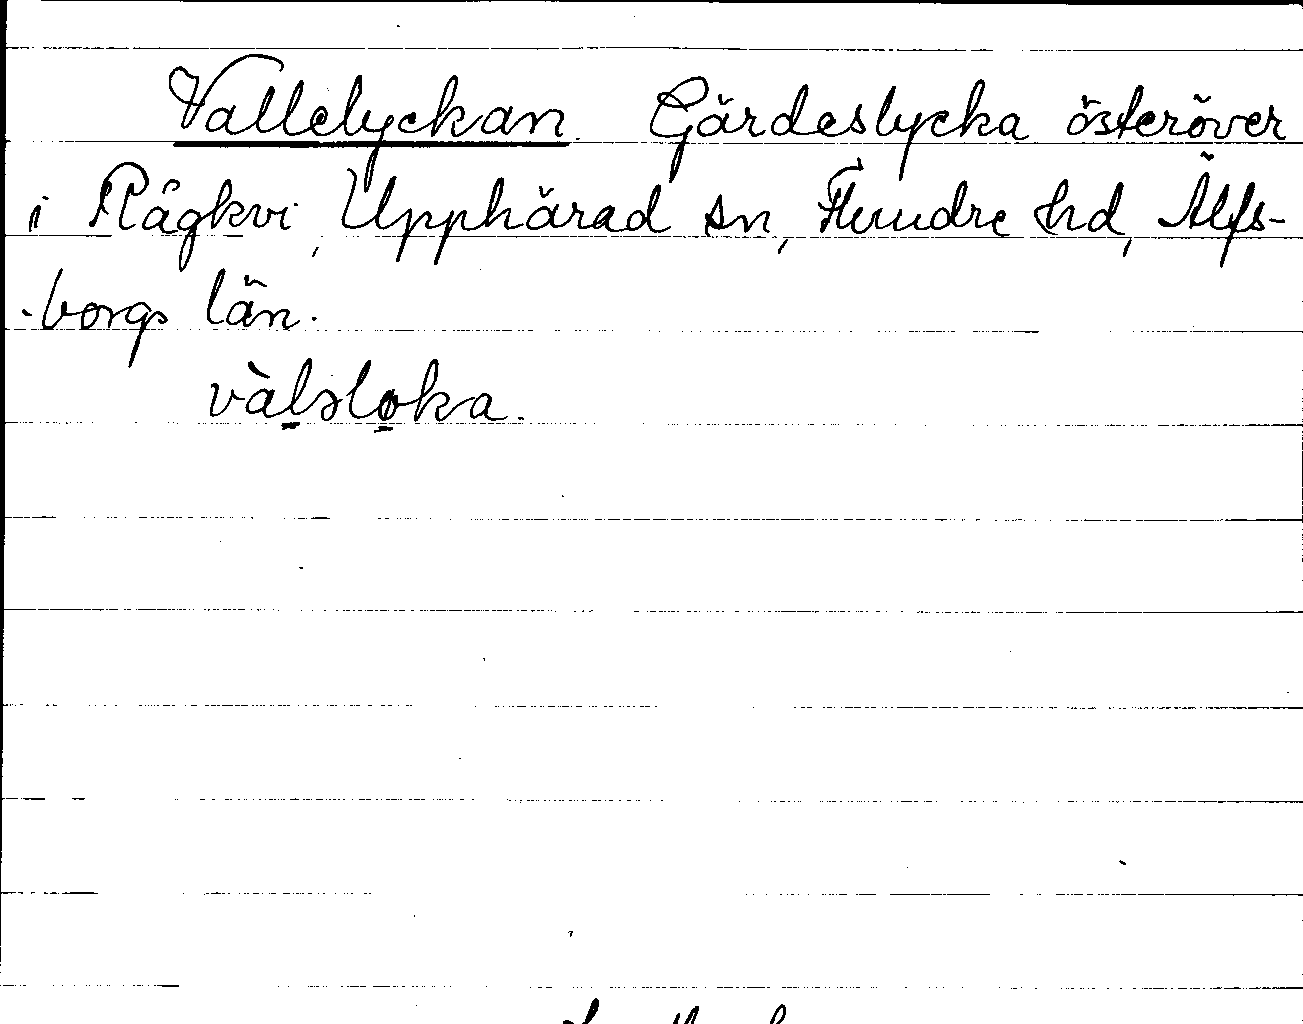 Vallelyckan. Gärdeslycka österöver
i Rågkvi, Upphärad sn, Flundre hd, Älfs-
-borgs län.
vàl̲əlo̲ka.